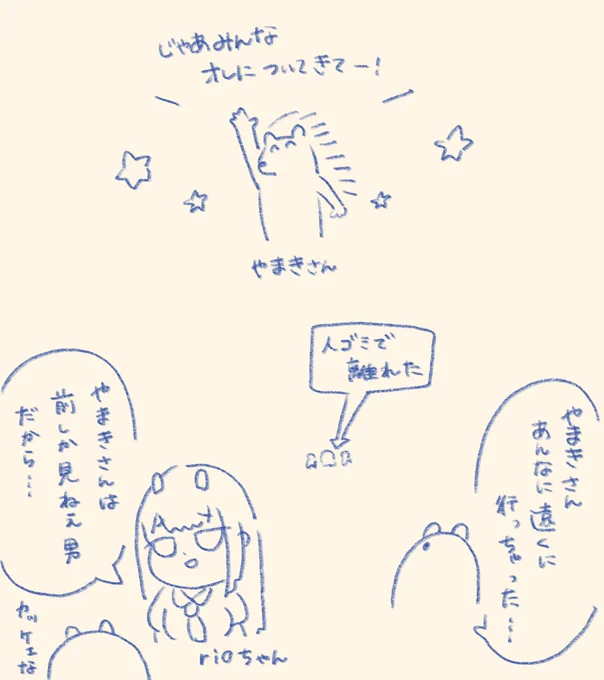 じゃあみんな
オレについてきてー!
やまきさん
人ゴミで
離れた
やまきさん
あんなに遠くに
行っちゃった…
やまきさんは
前しか見ねえ男
だから…
rioちゃん
カッケェな